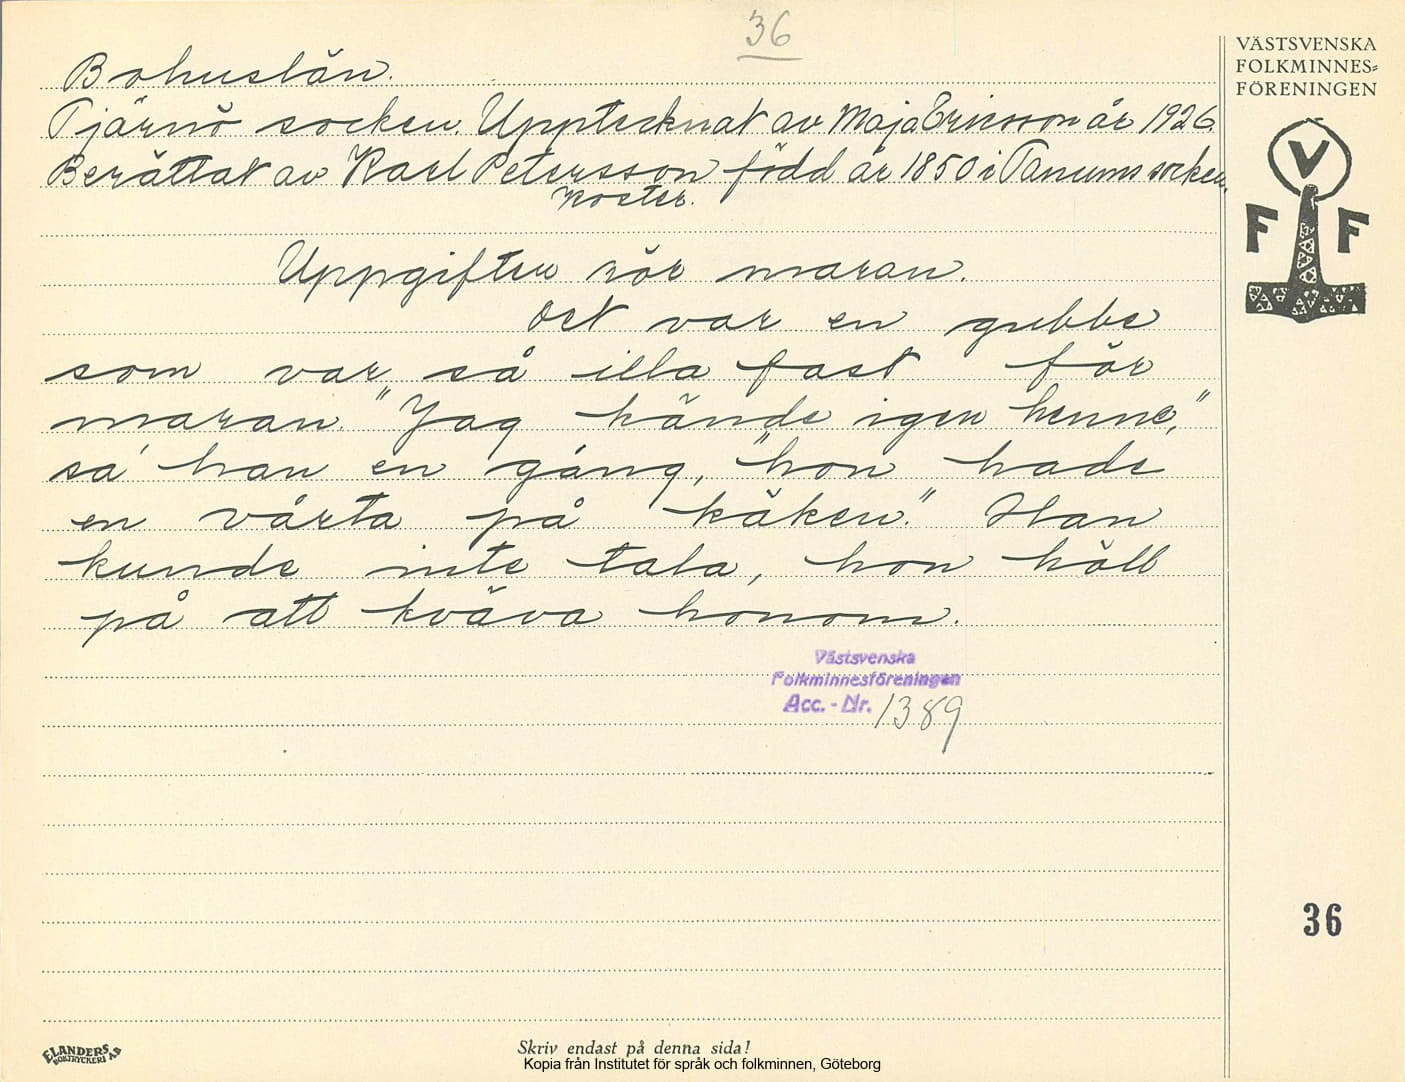 36
VÄSTSVENSKA
FOLKMINNES-
FÖRENINGEN
V
F F
Bohuslän.
Tjärnö socken. Upptecknat av Maja Ericsson år 1926.
Berättat av Karl Petersson född år 1850 i Tanums socken.
Koster.
Uppgiften rör maran.
Det var en gubbe
som var så illa fast för
maran. "Jag kände igen henne,"
sa' han en gång, "hon hade
en vårta på käken." Han
kunde inte tala, hon höll
på att kväva honom.
Västsvenska
Folkminnesföreningen
Acc. - Nr. 1389
36
ELANDERS
BOKTRYCKERI AB
Skriv endast på denna sida!
Kopia från Institutet för språk och folkminnen, Göteborg